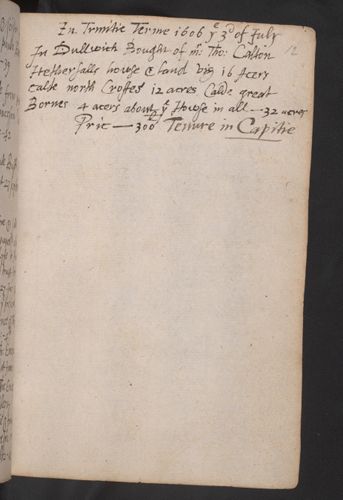 En Trinitie Terme 1606 yᵉ 3ᵈ of July
In Dullwich Bought of mʳ Tho: Calton
12
Hethersalls house & land viz 16 Acers
calde north Croftes 12 acres Calde great
Bornes 4 acers about yᵉ House in all — 32 acres
Pric — 300ˡⁱ Tenure in Capitie